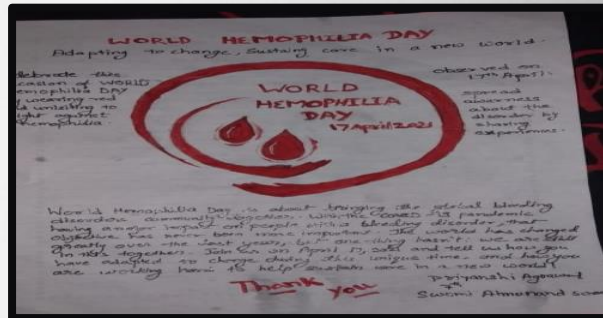 WORLD HEMOPHILIA DAY
Adapting to change, Sustaing care in a new world.
lebrate this
casion of WORLD
emophilia DAY
y wearing red
d uniting to
ight against
hemophilia.
WORLD
HEMOPHILIA
DAY
17 April 2021
observed on
17th April.
spread
about the
disorder by
sharing
experiences.
World Hemophilia Day is about bringing the global bleeding
disorders community together. With the COVID 19 pandemic
having a major impact on people with a bleeding disorder, that
objective has never been more important. The world has changed
greatly over the last years, but one thing hasn't: we are still
in this together. Join us on April 17, 2021 and tell us how you
have adapted to change during this unique time, and how you
are working hard to help sustain care in a new world!
Thank you
Priyanshi Agrawal
7th
Swami Atmanand